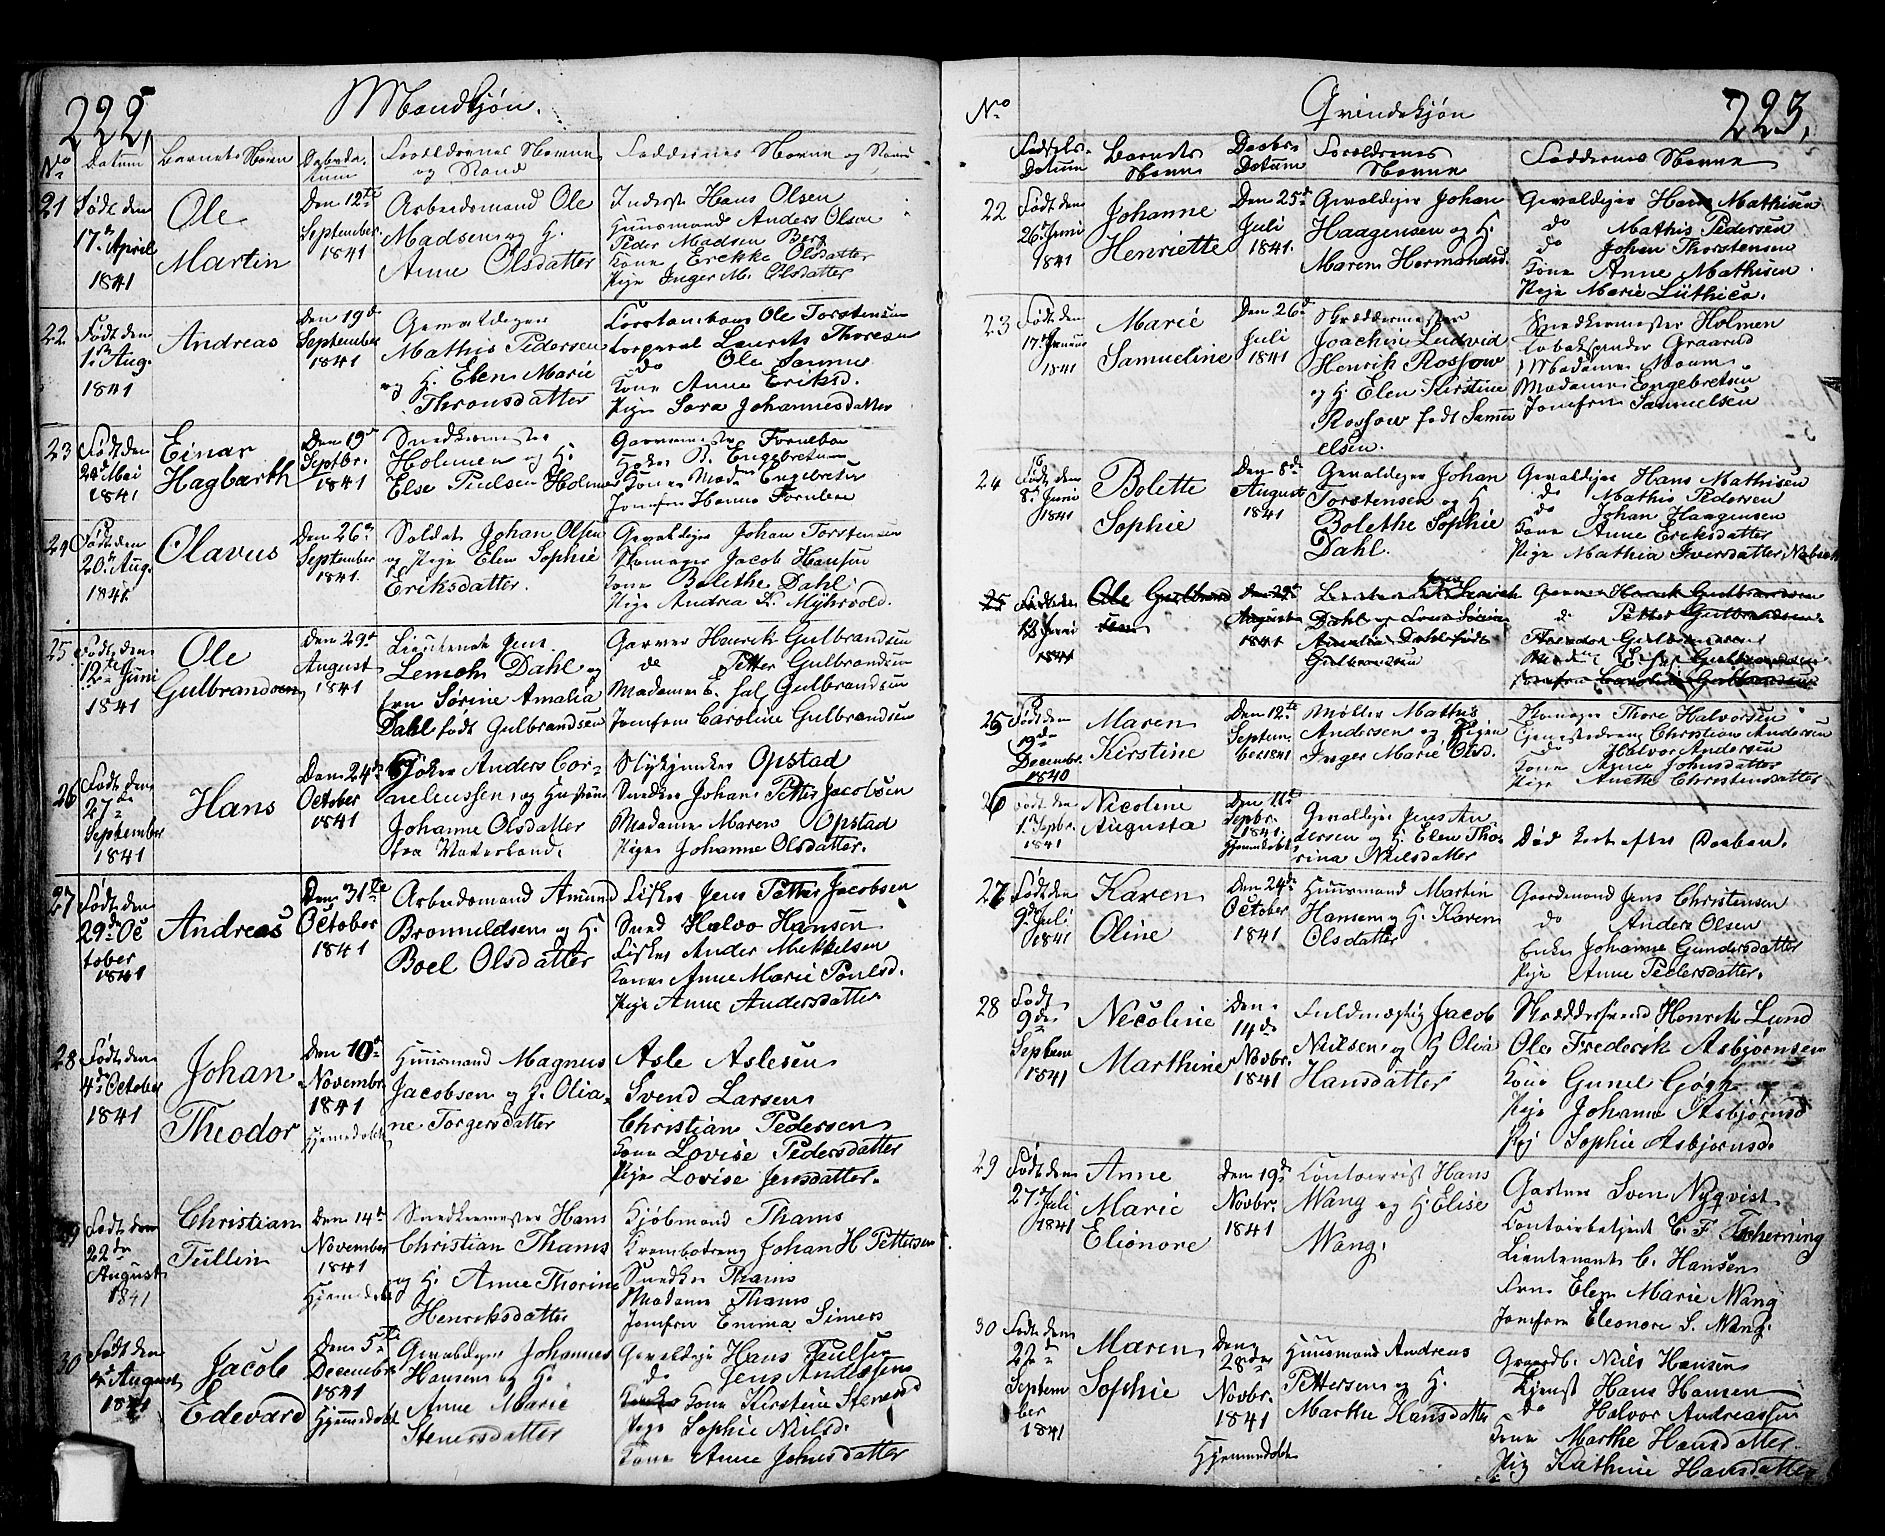 222.
Mandkjøn.
No Datum Barnets Navn Daabsda-
tum Forældrenes Navne
og Stand Faddernes Navne og Stand
21 Født den
17de April
1841
Ole
Martin
Den 12te
September
1841
Arbeidsmand Ole
Madsen og H.
Anne Olsdatter
Inderst Hans Olsen
Huusmand Anders Olsen
Peder Madsen Berg
Kone Olsdatter
Pige Inger M. Olsdatter
22 Født den
1ste Aug.
1841
Andreas
Den 19de
September
1841
Gevaldeger
Mathis Pedersen
og H. Elen Marie
Thronsdatter
Ole Torstensen
Corporal Laurits Thoresen
do Ole Sanne
Kone Anne Eriksd.
Pige Sara Johannesdatter
23 Født den
24de Mai
1841
Einar
Hagbarth
Den 19de
Septbr.
1841
Snedkermester
Holmen og H.
Else Poulsen Holmen
Garvermester Fornebo
Høker B. Engebretsen
Kone Mad. Engebretsen
Jomfru Hanna Fornebo
24 Født den
20de Aug.
1841
Olavus
Den 26de
September
1841.
Soldat Johan Olsen
og Pige Elen Sophie
Eriksdatter.
Gevaldiger Johan Torstensen
Skomager Jacob Hansen
Kone Bolethe Dahl
Pige Andrea K. Myhrvold.
25 Født den
12te Juni
1841
Ole
Gulbrandsen
Den 29de
August
1841
Lieutenant Jens
Lemch Dahl og
fru Sørine Amalia
Dahl født Gulbrandsen
Garver Henrik Gulbrandsen
do Petter Gulbrandsen
Madame E. sal. Gulbrandsen
Jomfrue Caroline Gulbrandsen
26 Født den
27de
September
1841
Hans
Den 24de
October
1841
Høker Anders Cor-
neliussen og Hustrue
Johanne Olsdatter
fra Vaterland.
Opstad
Snedker Johan Petter Jacobsen
Madame Maren Opstad
Pige Johanne Olsdatter.
27 Født den
29de Oc
tober
1841
Andreas
Den 31te
October
1841
Arbeidsmand Amund
Bromuldsen og H.
Boel Olsdatter
Fisker Jens Petter Jacobsen
Smed Halvo Hansen
Fisker Ander Mikkelsen
Kone Anne Marie Poulsd.
Pige Anne Andersdatter
28 Født den
4de October
1841
Johan
Theodor
Den 10de
Novembr.
1841
Hjemedøbt
Huusmand Magnus
Jacobsen og H. Olia-
ne Torgersdatter
Asle Aslesen
Svend Larsen
Christian Pedersen
Kone Lovise Pedersdatter
Pige Lovise Jensdatter.
29 Født den
22de
August
1841
Christian
Tullin
Den 14de
November
1841
Hjemedøbt
Snedkermester Hans
Christian Thams
og H. Anne Thorine
Henriksdatter
Kjøbmand Thams
Krambodreng Johan H Pettersen
Snedker Thams
Madame Thams
Jomfru Emma Simers
30 Født den
August
1841
Jacob
Edevard
Den 5te
Decembr.
1841
Hjemmedøbt
Gevaldiger Johannes
Hansen og H.
Anne Marie
Stenersdatter
Gevaldiger Hans Paulsen
do Jens Anderssen
Kone Kirstine Stenersd
Pige Sophie Nielsd.
Kone Anne Johnsdatter
No Qvindekjøn 223.
Fødsels-
Datum Barnets
Navn Daabs-
Datum Forældrenes
Navne Faddernes Navne
22 Født den
26de Juni
1841
Johanne
Henriette
Den 25de
Juli
1841.
Gevaldiger Johan
Haagensen og H.
Maren Hermandsd.
Gevaldiger Hans Mathisen
do Mathis Pedersen
do Johan Thorstensen
Kone Anne Mathisen
Pige Marie Lüthica.
23 Født den
17de Januar
1841
Marie
Samueline
Den 26de
Juli
1841
Skræddermester
Joachim Ludvid
Henrik Rossow
og H. Elen Kirstine
Rossow født Samu
elsen.
Snedkermester Holmen
Tobakspinder Graarud
Madame Moum
Madame Engebretsen
Jomfru Samuelsen
24 Født den
8de Juni
1841
Bolette
Sophie
Den 8de
August
1841
Gevaldiger Johan
Torstensen og H.
Bolethe Sophie
Dahl.
Gevaldiger Hans Mathisen
do Mathis Pedersen
do Johan Haagensen
Kone Anne Eriksdatter
Pige Mathia Iversdatter
25 Født den
12 Juni
1841
Ole Gulbrand
sen
Den 29de
August
1841
Dahl og Sørine
Amalia Dahl født
Gulbrandsen
Garver Henrik Gulbrandsen
do Petter Gulbrandsen
Gulbrandsen
Gulbrandsen
Jomfru Caroline Gulbrandsen
25 Født den
19de
Decembr.
1840
Maren
Kirstine
Den 12te
Septem
ber 1841
Møller Mathis
Andersen og Pigen
Inger Marie Olsd.
Skomager Thore Halvorsen
Tjenestedreng Christian Andersen
do Halvor Andersen
Kone Anne Johnsdatter
Pige Anette Christensdatter
26 Født den
1. Sepbr.
1841
Nicoline
Augusta
Den 11te
Sepbr.
1841.
Hjemedøbt
Gevaldiger Jens An
dersen og H. Elen Tho-
rina Nielsdatter
Død kort efter Daaben.
27 Født den
9de Juli
1841
Karen
Oline
Den 24de
October
1841
Huusmand Martin
Hansen og H. Karen
Olsdatter
Gaardmand Jens Christensen
do Anders Olsen
Enke Johanne Gundersdatter
Pige Anne Pedersdatter.
28 Født
9de
Septem
1841
Nicoline
Marthine
Den
14de
Novbr.
1841
Fuldmægtig Jacob
Nielsen og H Olia
Hansdatter
Skræddersvend Henrik Lund
Ole Frederik Asbjørnsen
Kone Gunel Gøgh
Pige Johanne Asbjørnsd
Pig Sophie Asbjørnsd.
29 Født den
27de Juli
1841
Anne
Marie
Elionore
Den 19de
Novbr.
1841
Contoerrist Hans
Wang og H. Elise
Wang.
Gartner Sven Nyqvist
Contoirbetjent C. F. Tscherning
Lieutenant C. Hansen
Frue Elen Marie Wang
Jomfrue Eleonore S. Wang.
30 Født den
22de
Septem
ber
1841
Maren
Sophie
Den
28de
Novbr.
1841
Hjemmedøbt
Huusmand Andreas
Pettersen og H.
Marthe Hansdatter
Gaardb. Niels Hansen
Tjenst Hans Hansen
do Halvor Andreassen
Kone Marthe Hansdatter.
Pig Kathrine Hansdatter